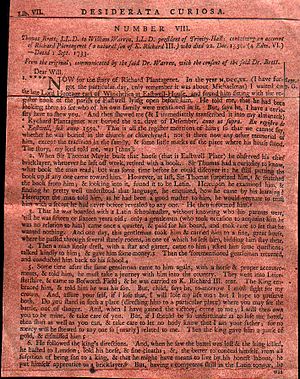 Lib. VII. DESIDERATA CURIOSA.
NUMBER VIII.
Thomas Brett, LL.D. to William Warren, LL.D. president of Trinity-Hall; containing an account
of Richard Plantagenet (a natural son of K. Richard III.) who died 22. Dec. 1550. (4 Edw. VI.)
From the original, communicated by the said Dr. Warren, with the consent of the said Dr. Brett.
Dear Will.
NOW for the story of Richard Plantagenet. In the year
the late Lord Heneage earl of Winchelsea in Eastwell-House, and found him sitting with the
register book of the parish of Eastwell lying open before him. He told me, that he had been
looking there to see who of his own family were mentioned in it. But, says he, I have a curiosity
here to show you. And then showed me
Rychard Plantagenet was
Eastwell,
whether he was buried in the church or churchyard; nor is there now any other memorial of
him, except the tradition in the family, & some little marks of the place where his house
stood. The story my lord told me, was
2. When Sr. Thomas Moyle built that house (that is Eastwell Place) he observed his chief
bricklayer, whenever he left off work, retired with a book. Sr. Thomas had a curiosity to know
what book the man read; but was some time before he could discover it: he still putting the
book up if any one came toward him. However, at last, Sr. Thomas surprized him, & snatched
the book from him; & looking into it, found it to be Latin. Hereupon he examined him, &
finding he pretty well understood that language, he enquired, how he came by his learning?
Hereupon the man told him, as he had been a good master to him, he would venture to trust
him with a secret he had never before revealed to any one. He then informed him.
3. That he was boarded with a Latin schoolmaster, without knowing who his parents were,
till he was fifteen or sixteen years old; only a gentleman (who took occasion to acquaint him he
was no relation to him) came once a quarter, & paid for his board, and took care to see that he
wanted nothing. And one day, this gentleman took him & carried him to a fine, great house,
where he passed through several stately rooms, in one of which he left him, bidding him stay there.
4. Then a man finely drest, with a star and garter, came to him; asked him some questions;
talked kindly to him; & gave him some money. Then the forementioned gentleman returned,
and conducted him back to his school.
5. Some time after the same gentleman came to him again, with a horse & proper accoutre-
ments, & told him, he must take a journey with him into the country. They went into Leice-
stershire, & came to Bosworth Field; & he was carried to K. Richard III. tent. The King em-
braced him, & told him he was his son. But, child, says he, to morrow I must fight for my
crown. And, assure your self, if I lose that, I will lose my life too: but I hope to preserve
both. Do you stand in such a place (directing him to a particular place) where you may see the
battle, out of danger. And, when I have gained the victory, come to me; I will then own
you to be mine, & take care of you. But, if I should be so unfortunate as to lose the battle,
then shift as well as you can, & take care to let no body know that I am your father; for no
mercy will be shewed to any one so nearly related to me. Then the king gave him a purse of
gold, & dismissed him.
6. He followed the king's directions. And, when he saw the battle was lost & the king killed,
he hasted to London; sold his horse, & fine cloaths; &, the better to conceal himself from all
suspicion of being son to a king, & that he might have means to live by his honest labour, he
put himself apprentice to a bricklayer. But, having a competent skill in the Latin tongue, he